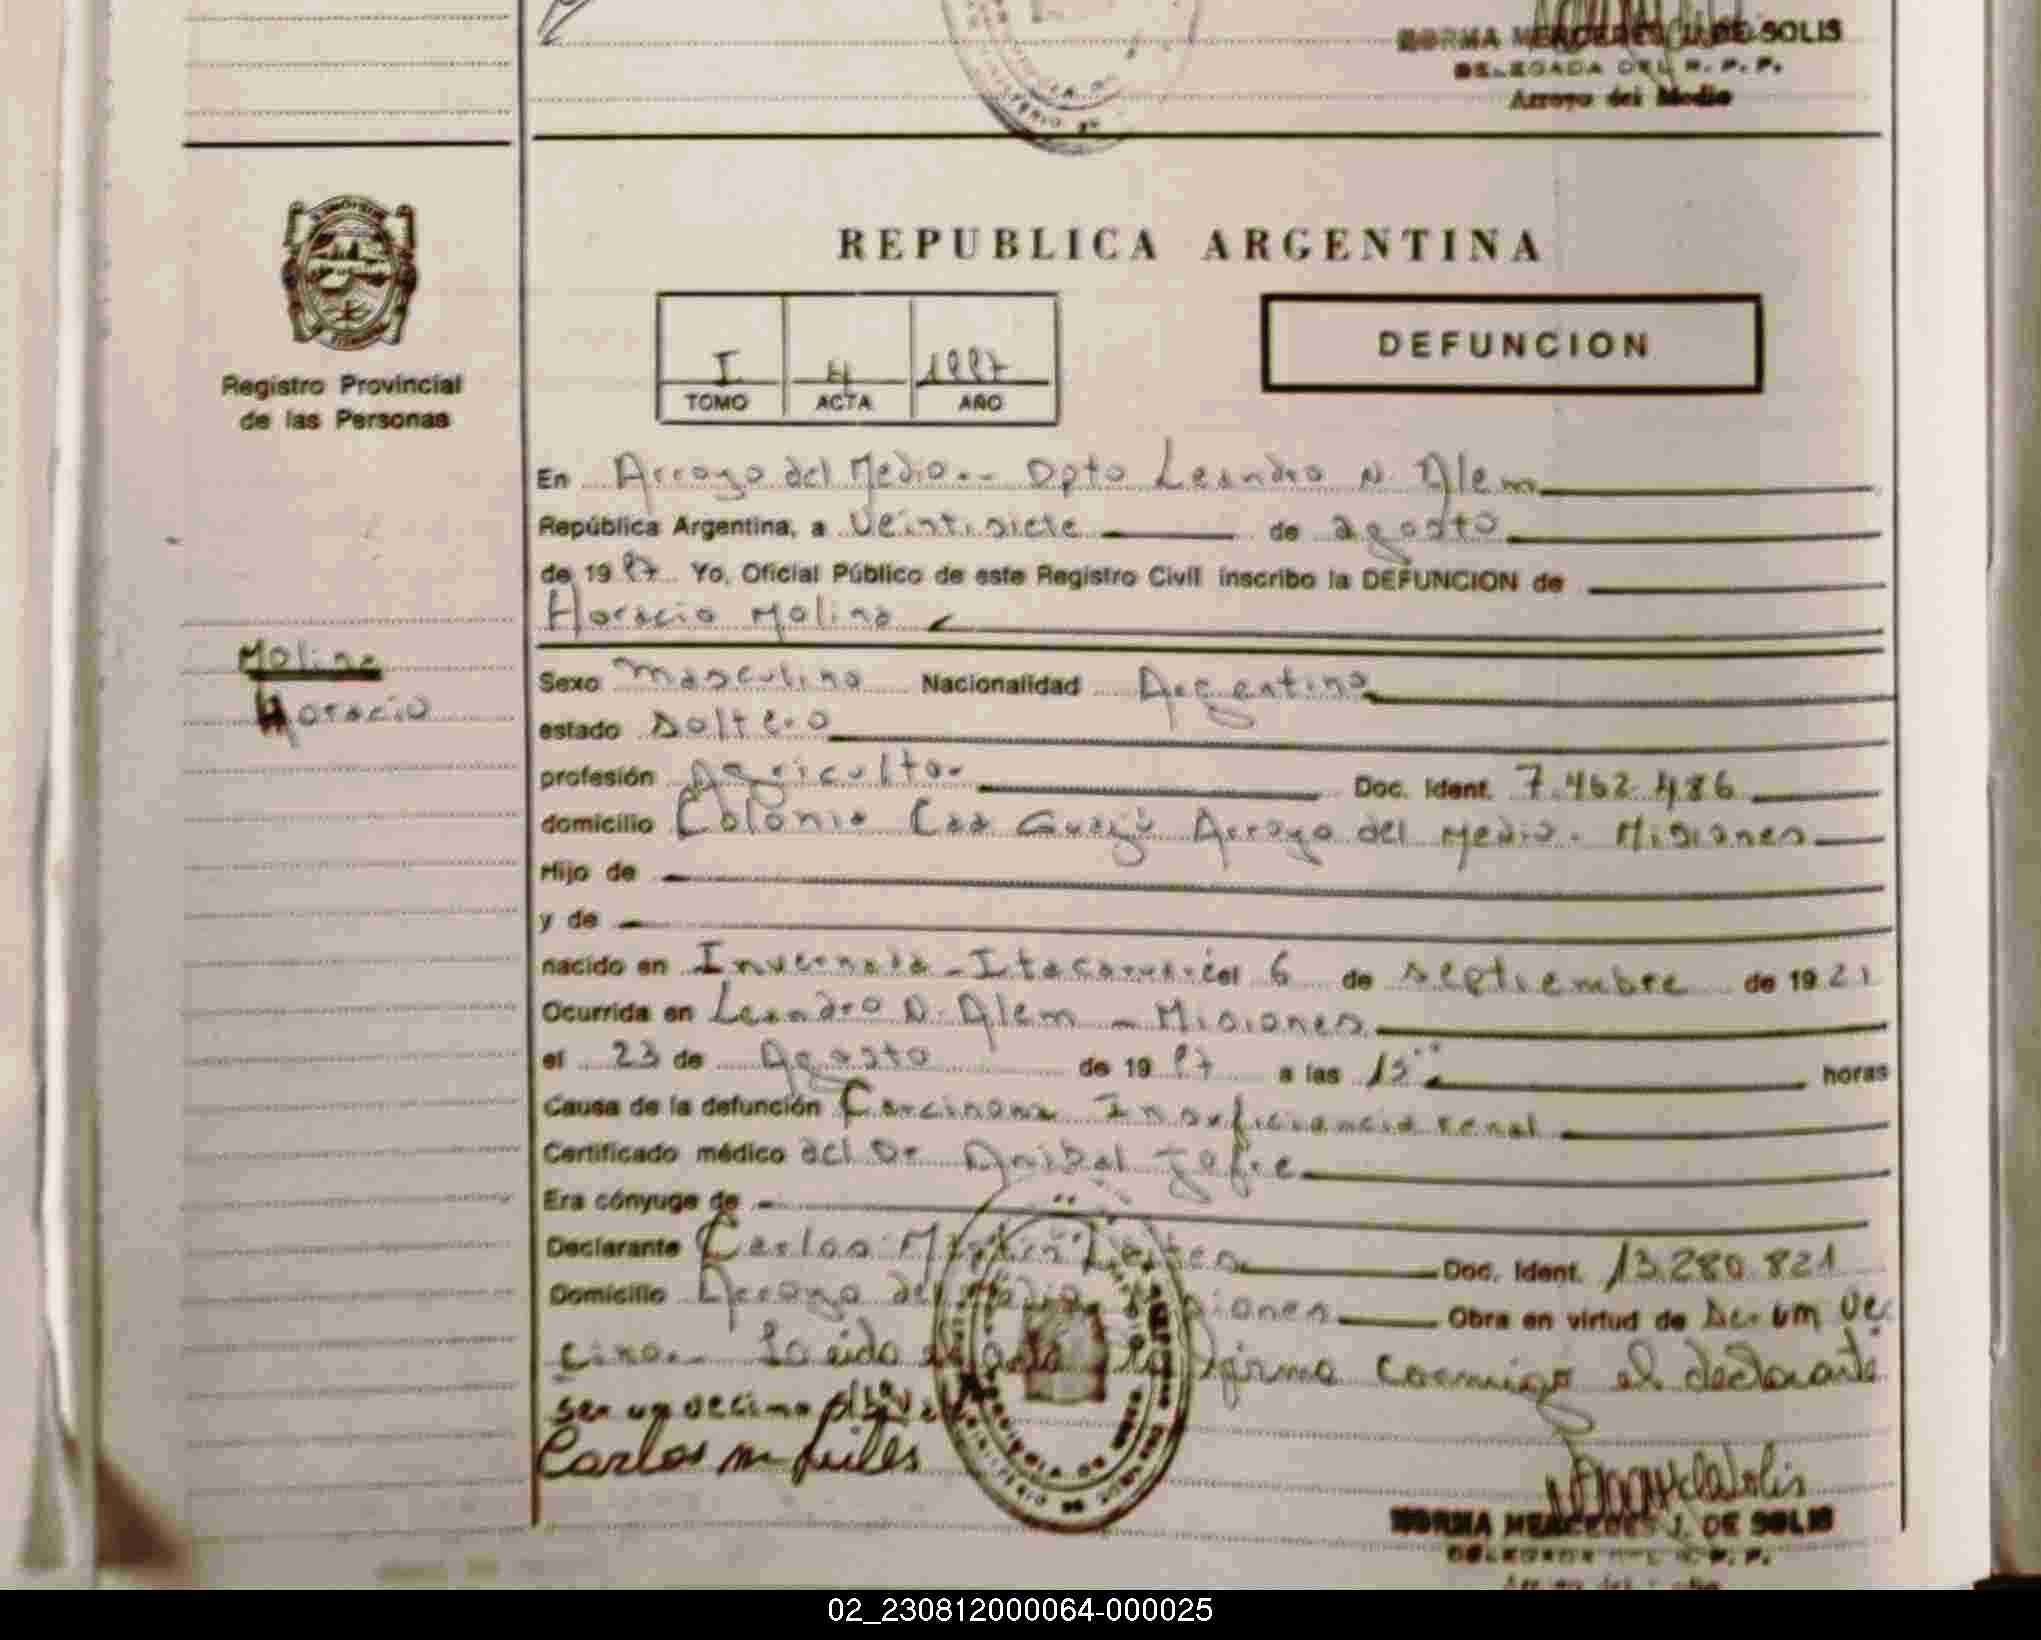 NORMA MERCEDES J. DE SOLIS
DELEGADA DEL R. P. P.
Arroyo del Medio
REPUBLICA ARGENTINA
Registro Provincial
de las Personas
I 4 1987
TOMO ACTA AÑO
DEFUNCION
En Arroyo del Medio.- Dpto Leandro N. Alem
República Argentina, a Veintisiete de agosto
de 1987 Yo, Oficial Público de este Registro Civil inscribo la DEFUNCION de
Horacio Molina
Molina
Horacio
Sexo Masculino Nacionalidad Argentina
estado Soltero
profesión Agricultor Doc. Ident. 7.462.486
domicilio Colonia Caa Guazú Arroyo del Medio. Misiones
Hijo de
y de
nacido en Invernada - Itacaruaré el 6 de septiembre de 1921
Ocurrida en Leandro N. Alem - Misiones
el 23 de Agosto de 1987 a las 15 horas
Causa de la defunción Carcinoma Insuficiencia renal
Certificado médico del Dr Anibal Jofre
Era cónyuge de
Declarante Carlos Martin Leites Doc. Ident. 13.280.821
Domicilio Arroyo del Medio Misiones Obra en virtud de Ser um ve
cino.- Leida el acta la firma conmigo el declarante
ser un vecino
Carlos M Leites
NORMA MERCEDES J. DE SOLIS
DELEGADA DEL R. P. P.
02_230812000064-000025